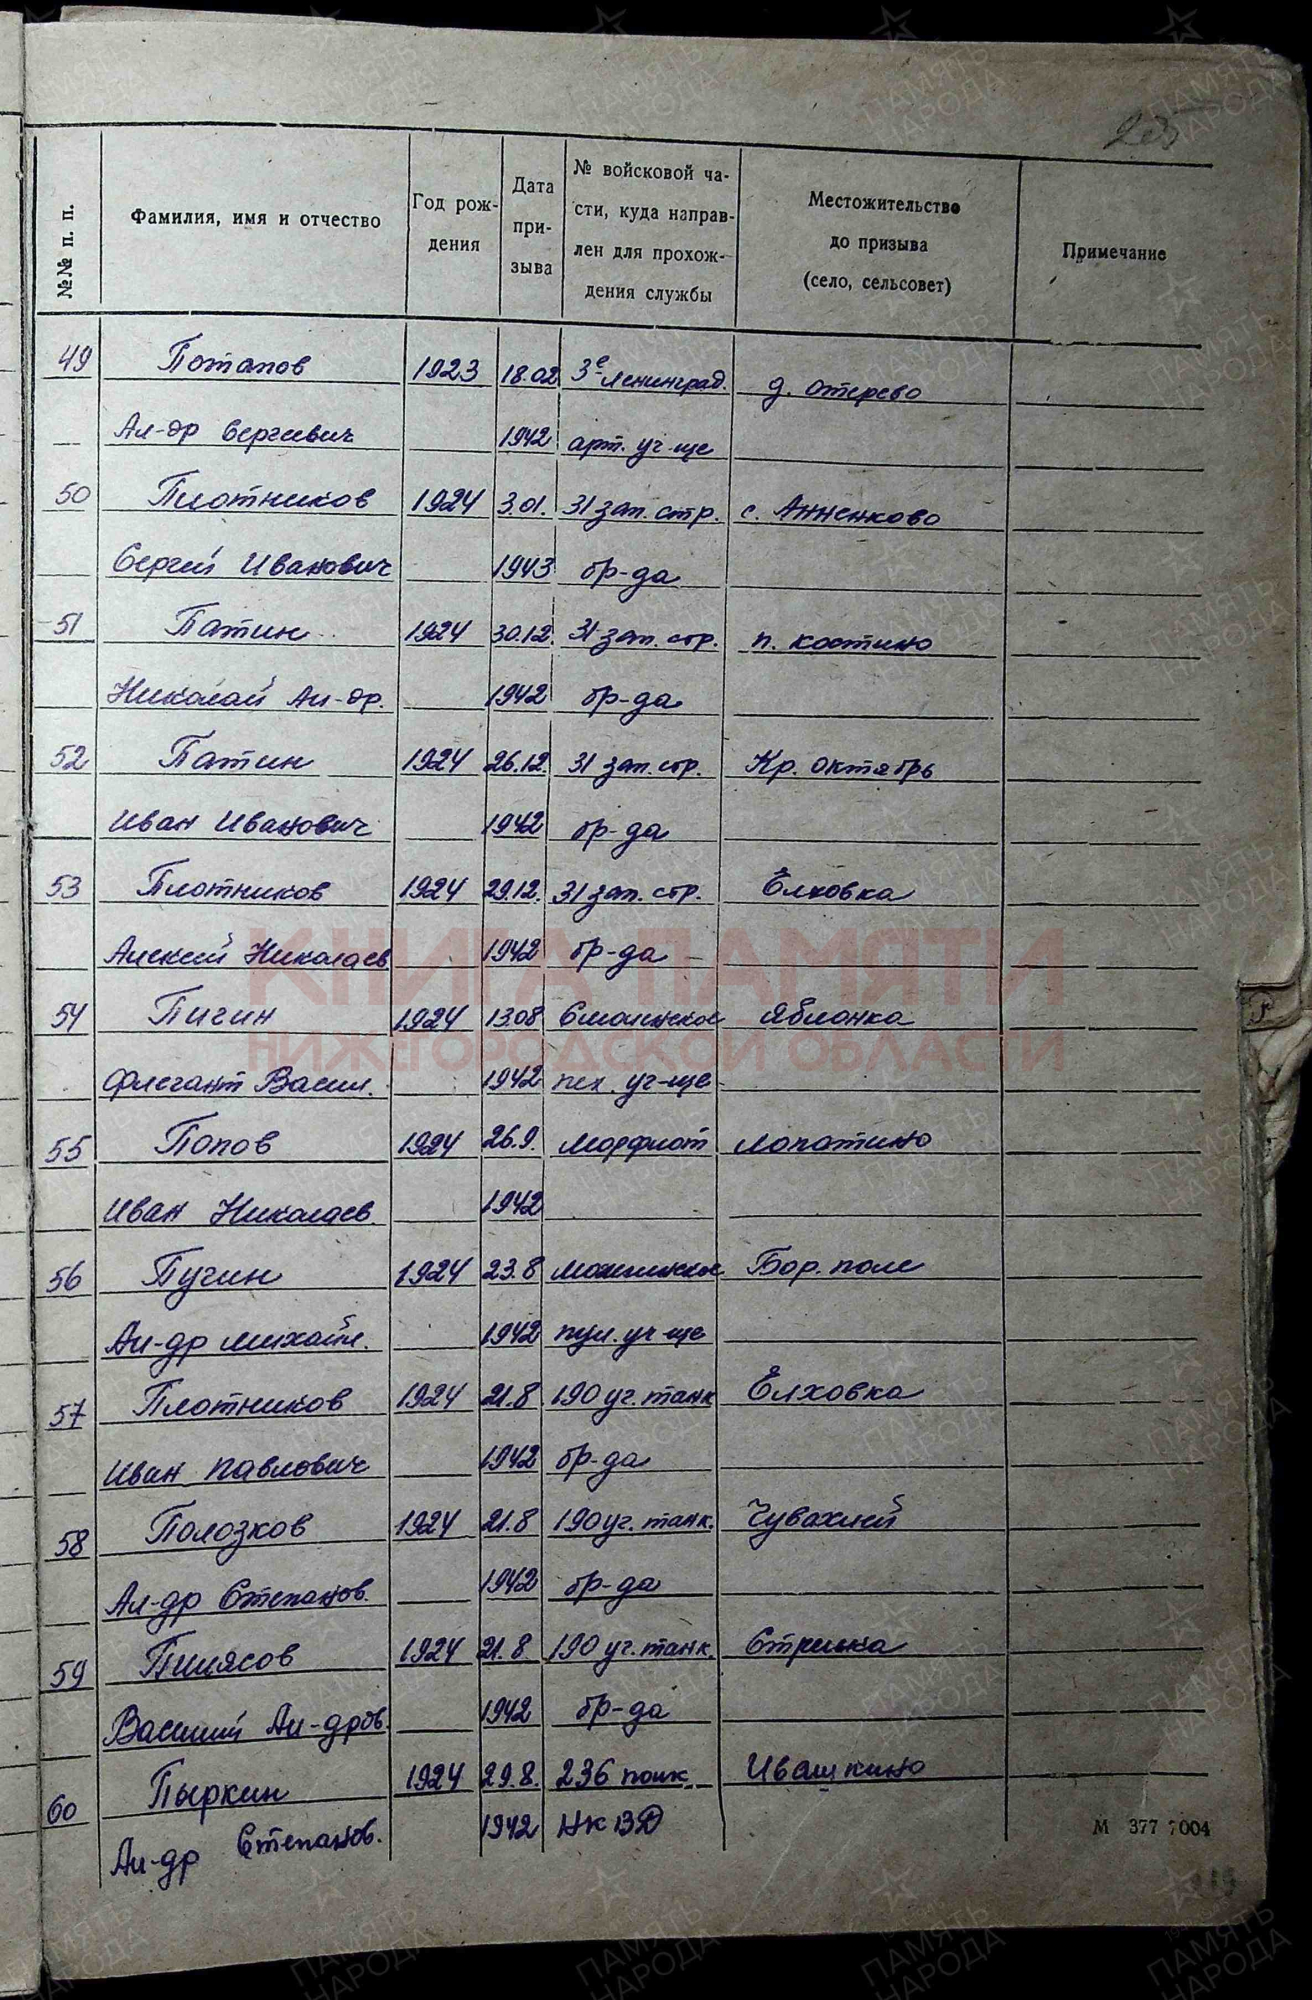 205
№№ п. п.
Фамилия, имя и отчество
Год рож-
дения
Дата
при-
зыва
№ войсковой ча-
сти, куда направ-
лен для прохож-
дения службы
Местожительство
до призыва
(село, сельсовет)
Примечание
49 Потапов 1923 18.02 3е Ленинград. д. Отерево
Ал-др Сергеевич 1942 арт. уч-ще
50 Плотников 1924 3.01. 31 зап. стр. с. Анненково
Сергей Иванович 1943 бр-да
51 Патин 1924 30.12. 31 зап. стр. п. Костино
Николай Ал-др. 1942 бр-да
52 Патин 1924 26.12. 31 зап. стр. Кр. Октябрь
Иван Иванович 1942 бр-да
53 Плотников 1924 29.12. 31 зап. стр. Елховка
Алексей Николаев. 1942 бр-да
КНИГА ПАМЯТИ
54 Пигин 1924 13.08 Смоленское Яблонка
НИЖЕГОРОДСКОЙ ОБЛАСТИ
Флегант Васил. 1942 пех. уч-ще
55 Попов 1924 26.9. Морфлот Лопатино
Иван Николаев. 1942
56 Пучин 1924 23.8 Бор. поле
Ал-др Михайл. 1942 пул. уч-ще
57 Плотников 1924 21.8 190 уч. танк Елховка
Иван Павлович 1942 бр-да
58 Полозков 1924 21.8 190 уч. танк. Чувахлей
Ал-др Степанов. 1942 бр-да
59 1924 21.8 190 уч. танк. Стрелка
Василий Ал-дров. 1942 бр-да
60 Пыркин 1924 29.8. 236 полк Ивашкино
Ал-др Степанов. 1942 НКВД
М 377 7004
ПАМЯТЬ
НАРОДА